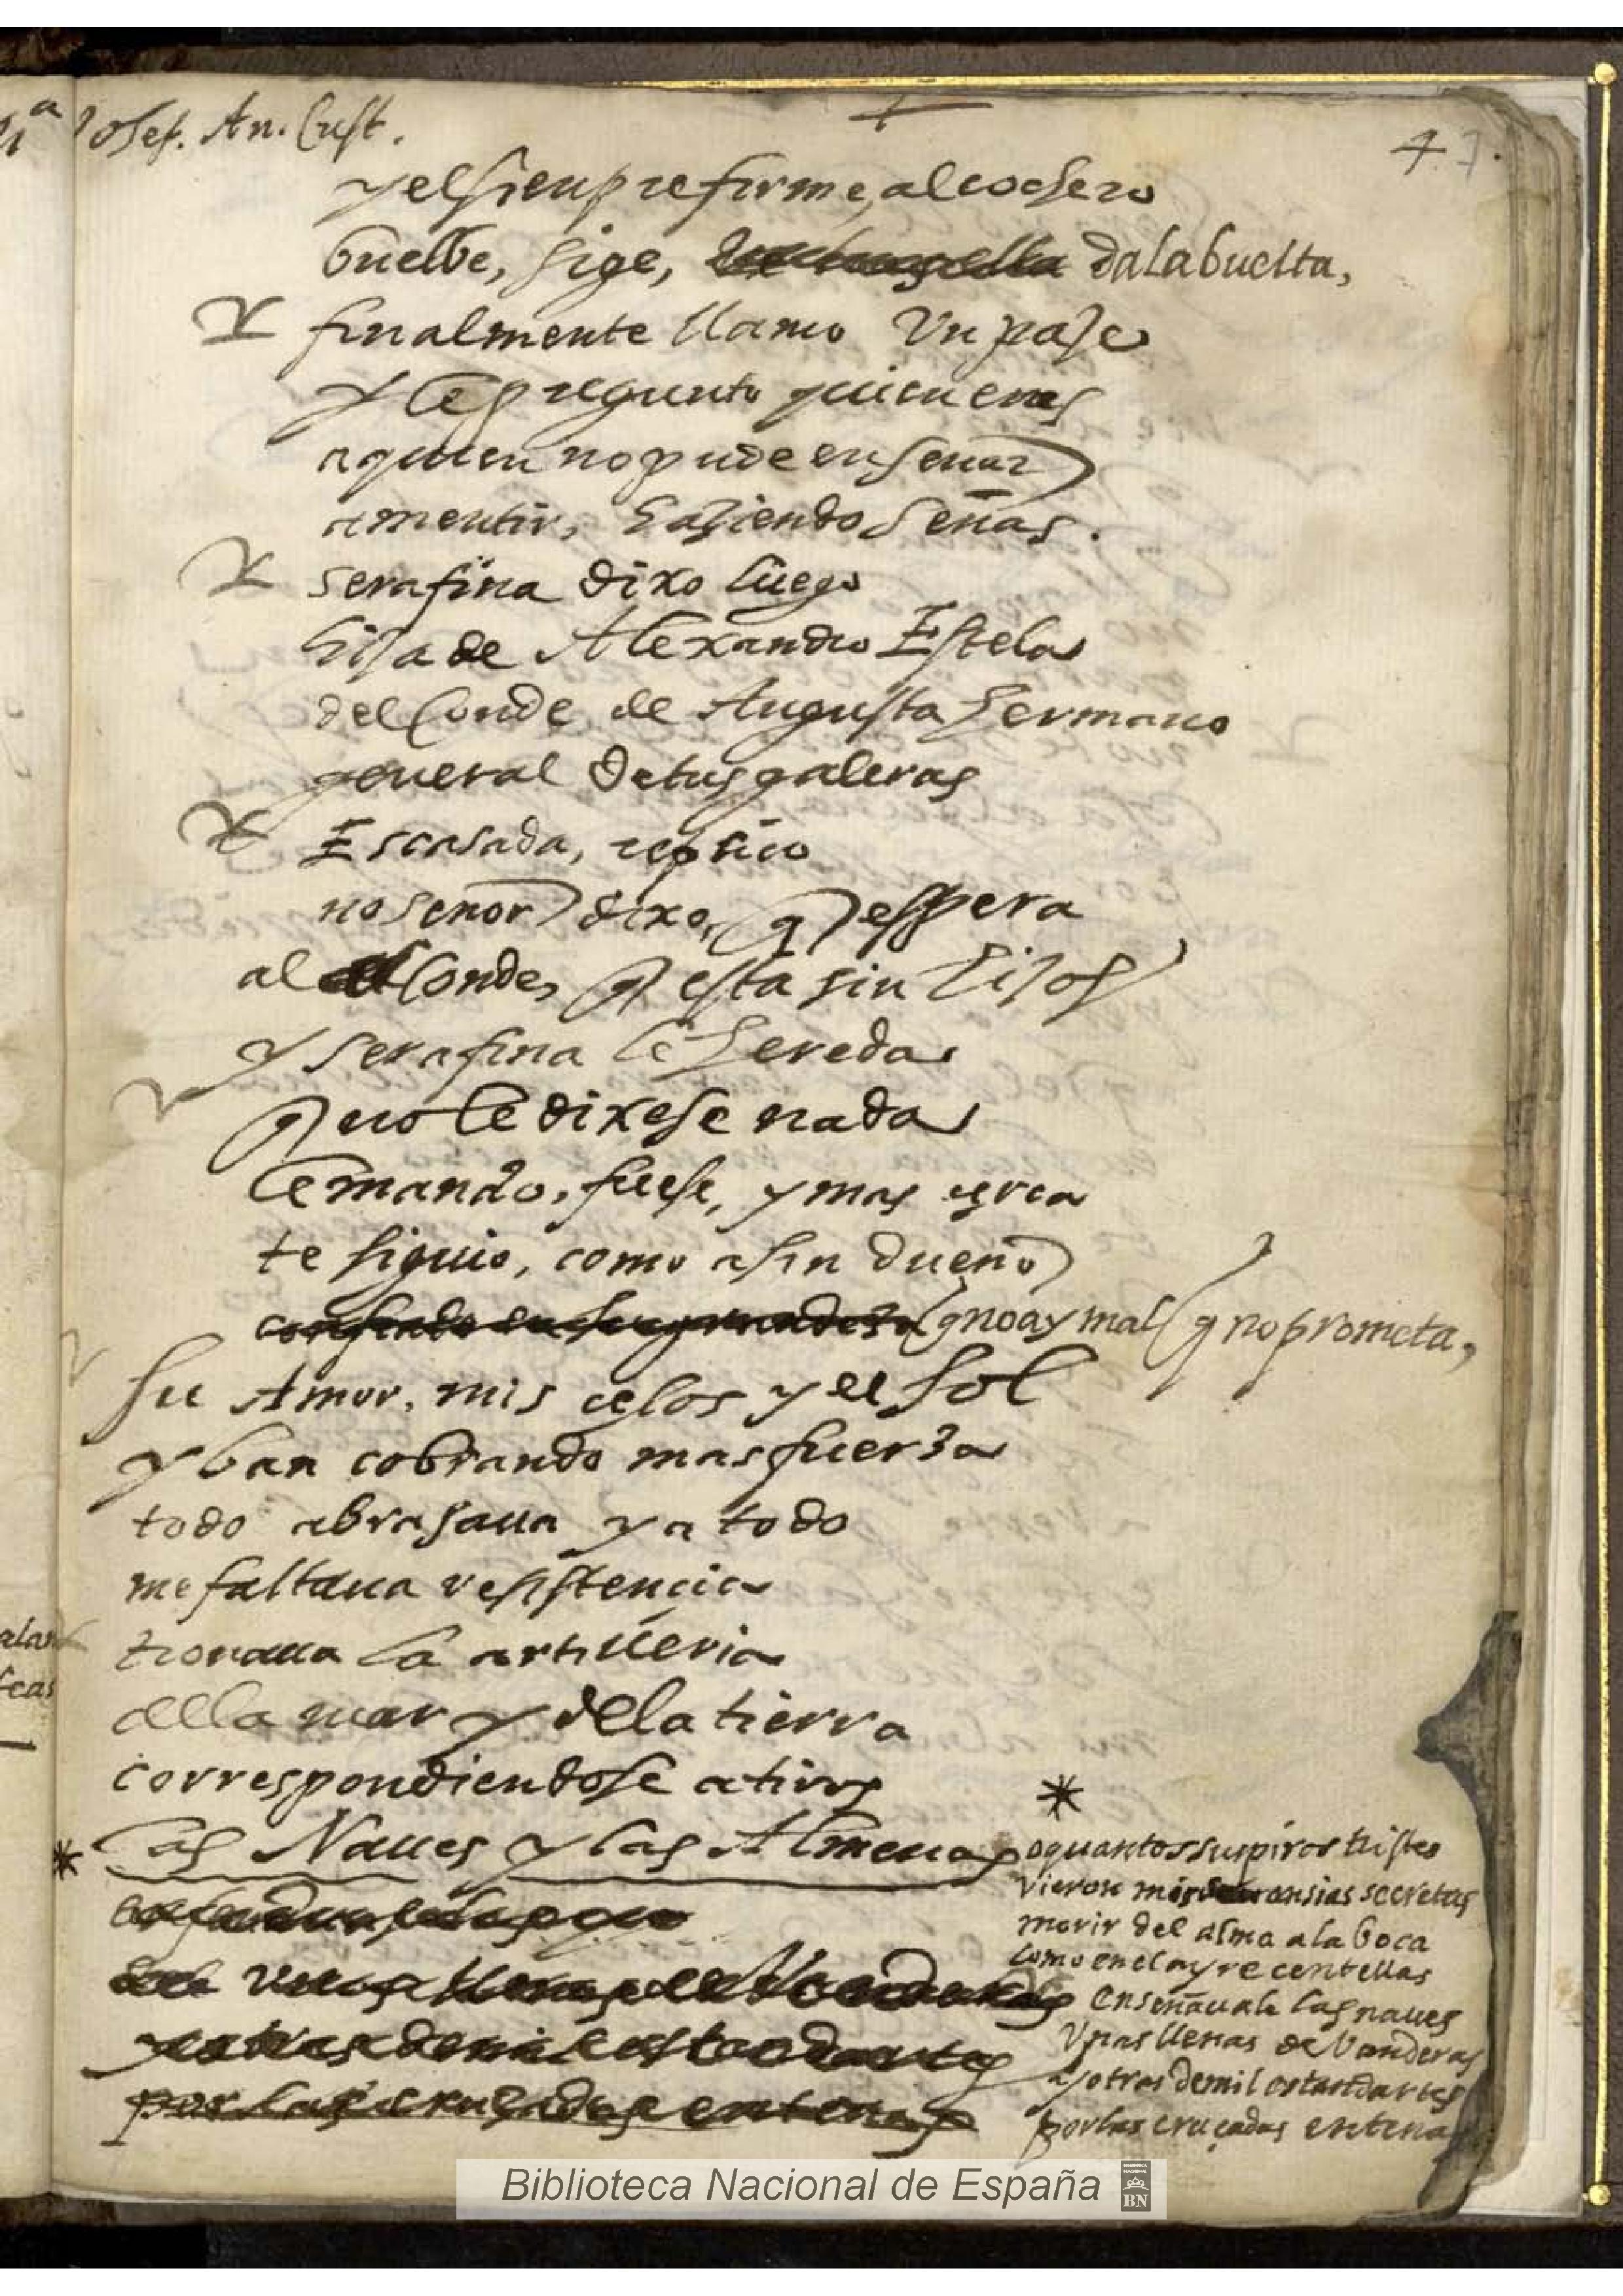 Josef. An. Cust.
4
y el sienpre firme, al cochero
buelbe, sige, da la buelta,
finalmente llamo vn paje
y le pregunto quien eras
a quien no pude enseñar
a mentir, haziendo señas.
serafina dixo luego
hija de Alexandro Estela
del Conde de Augusta hermano
general de tus galeras
Es casada, replico
no señor dixo, q espera
al Conde, q esta sin hijos
y serafina le hereda
q no le dixese nada
le mando, fuese, y mas cerca
te siguio, como a sin dueño
q no ay mal q no prometa,
su Amor, mis celos y el sol
yban cobrando mas fuerza
todo abrasaua y a todo
me faltaua resistencia
tronaua la artilleria
de la mar y de la tierra
correspondiendose a tiros
* las Naues y las Almenas
*
o quantos suspiros tristes
vieron mis ansias secretas
morir del alma a la boca
como en el ayre centellas
enseñauale las naues
Vnas llenas de Vanderas
y otras de mil estandartes
por las cruçadas entenas
Biblioteca Nacional de España
BN